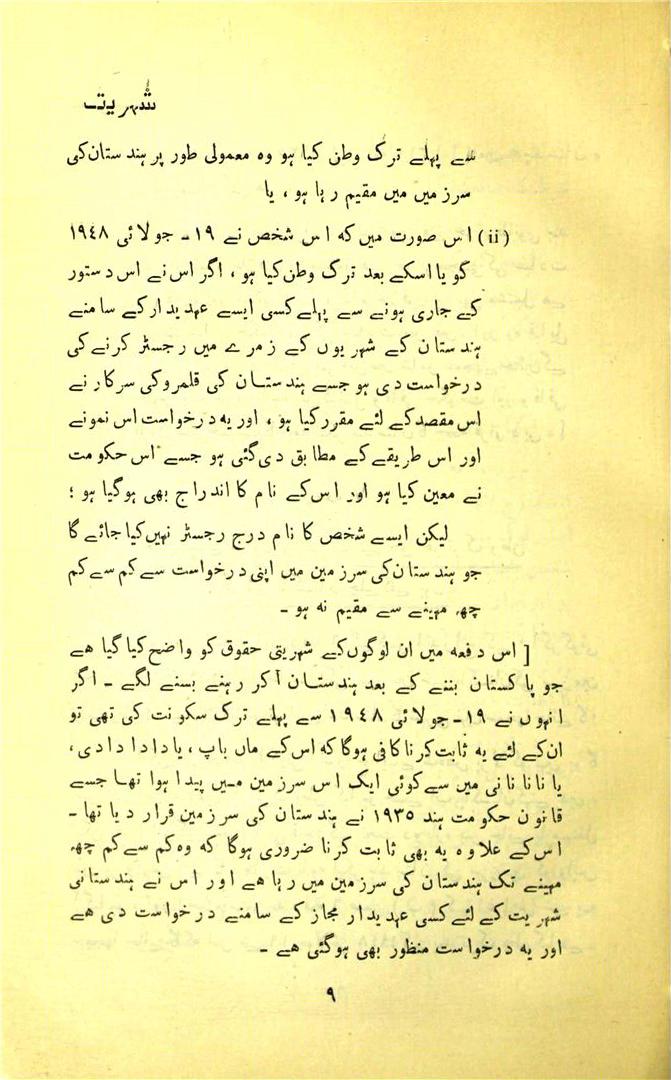 شہریت
سے پہلے ترک وطن کیا ہو وہ معمولی طور پر ہندستان کی
سرز میں میں مقیم رہا ہو ، یا
(ii) اس صورت میں کہ اس شخص نے ۱۹۔ جولائی ۱۹۴۸
کو یا اسکے بعد ترک وطن کیا ہو ، اگر اس نے اس دستور
کے جاری ہونے سے پہلے کسی ایسے عہدیدار کے سامنے
ہندستان کے شہریوں کے زمرے میں رجسٹر کرنے کی
درخواست دی ہو جسے ہندستان کی قلمرو کی سرکار نے
اس مقصد کے لئے مقرر کیا ہو ، اور یہ درخواست اس نمونے
اور اس طریقے کے مطابق دی گئی ہو جسے اس حکومت
نے معین کیا ہو اور اس کے نام کا اندراج بھی ہوگیا ہو ؛
لیکن ایسے شخص کا نام درج رجسٹر نہیں کیا جائے گا
جو ہندستان کی سرزمین میں اپنی درخواست سے کم سے کم
چھہ مہینے سے مقیم نہ ہو ۔
[ اس دفعہ میں ان لوگوں کے شہریتی حقوق کو واضح کیا گیا ہے
جو پاکستان بننے کے بعد ہندستان آکر رہنے بسنے لگے ۔ اگر
انہوں نے ۱۹۔ جولائی ۱۹۴۸ سے پہلے ترک سکونت کی تھی تو
ان کے لئے یہ ثابت کرنا کافی ہوگا کہ اس کے ماں باپ ، یا دادا دادی ،
یا نانا نانی میں سے کوئی ایک اس سرزمین میں پیدا ہوا تھا جسے
قانون حکومت ہند ۱۹۳۵ نے ہندستان کی سرزمین قرار دیا تھا ۔
اس کے علاوہ یہ بھی ثابت کرنا ضروری ہوگا کہ وہ کم سے کم چھہ
مہینے تک ہندستان کی سرزمین میں رہا ہے اور اس نے ہندستانی
شہریت کے لئے کسی عہدیدار مجاز کے سامنے درخواست دی ہے
اور یہ درخواست منظور بھی ہوگئی ہے ۔
۹